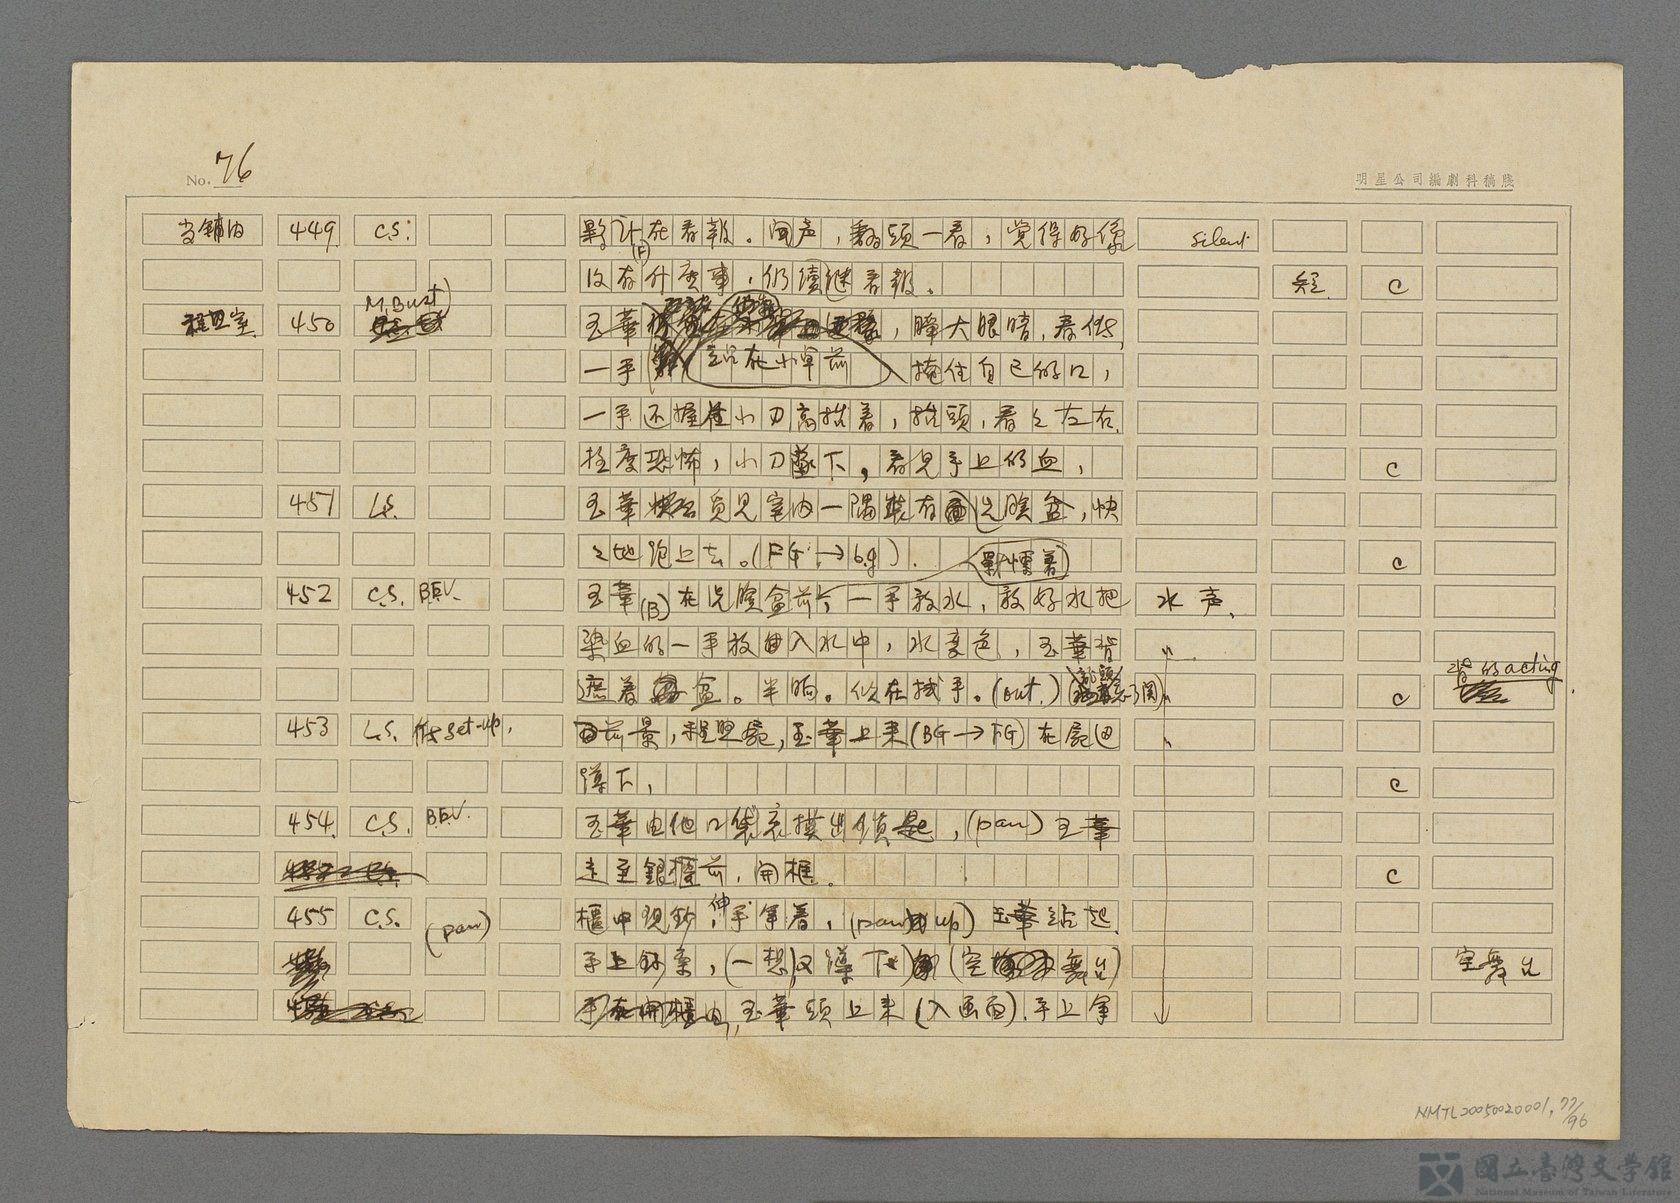 No. 76
明星公司編劇科稿牋
当鋪内 449 C.S. 夥计(B)在看報。闻声,翻頭一看,觉得好像 silent
没有什麼事,仍續継看報。 C
程四室 450 M.Bust 玉華 站在小桌前,瞳大眼睛,看他,
一手 掩住自己的口,
一手还握住小刀高抬着,抬頭,看々左右,
極度恐怖,小刀落下,看見手上的血, C
451 L.S. 玉華 見室内一隅裝有洗臉盆,快
々地跑上去。(FG→b.g). C
452 C.S. B.E.V. 玉華(B)在洗臉盆前,一手放水,放好水把 水声,
染血的一手放入水中,水变色,玉華背
遮着盆。半晌。似在拭手。(out.) C 背的acting
453 L.S. 低set-up, 前景,程四屍,玉華上来(BG→FG)在屍边
蹲下, C
454 C.S. B.E.V. 玉華由他口袋裏摸出鎖匙,(pan)玉華
走至銀櫃前,開櫃。 C
455 C.S. (pan) 櫃中現鈔,伸手拿着,(pan up) 玉華站起
手上鈔票,(一想,又蹲下) (空舞台) 空舞台
玉華頭上来(入画面).手上拿
NMTL20050020001,77/96
國立臺灣文學館
National Museum of Taiwan Literature